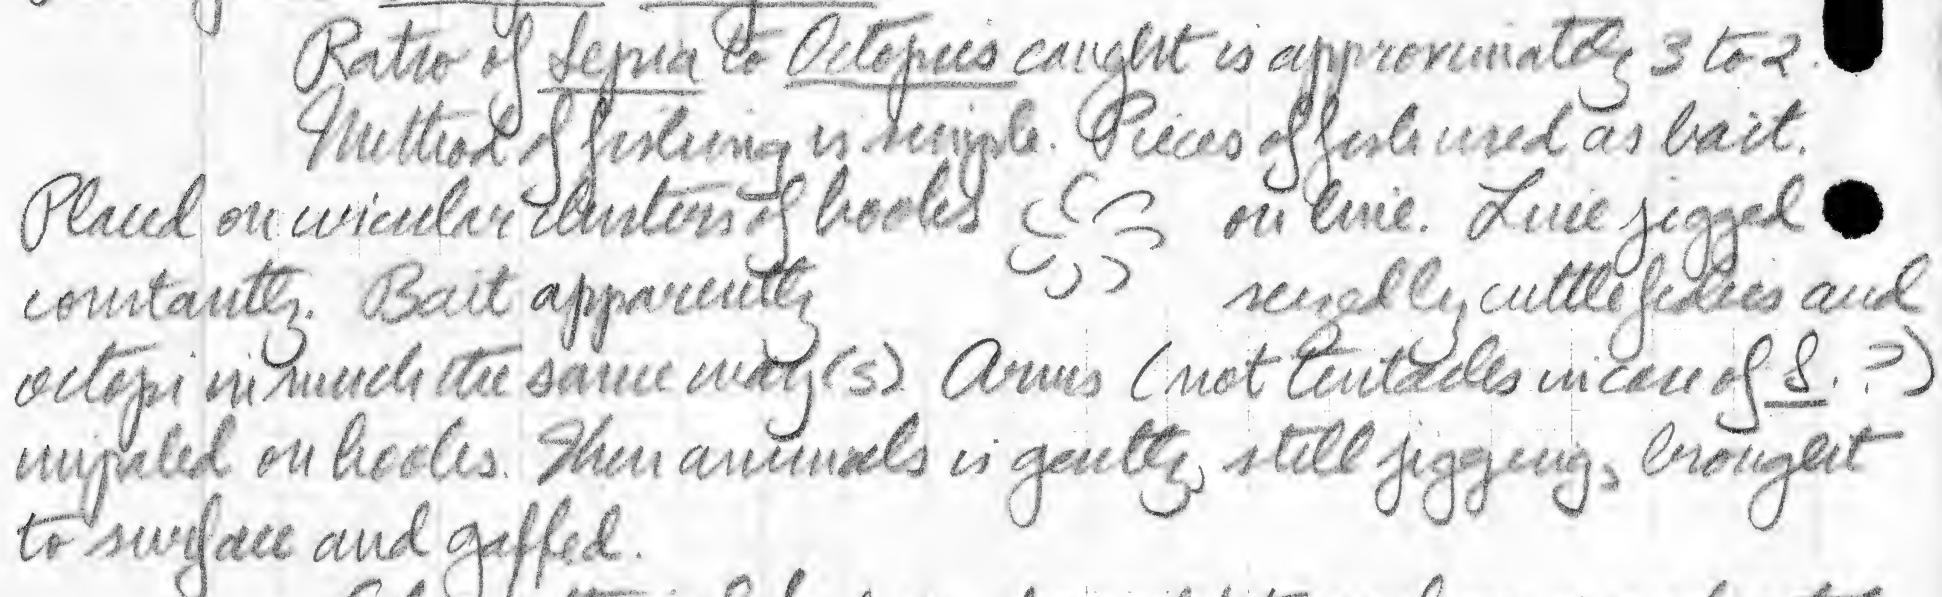 Ratio of Sepia to Octopus caught is approximately 3 to 2.
Method of fishing is simple. Pieces of fish used as bait.
Placed on circular clusters of hooks on line. Line jigged
constantly. Bait apparently cuttlefishes and
octopi in much the same way(s). Arms (not tentacles in case of S.?)
impaled on hooks. Then animals is gently, still jigging, brought
to surface and gaffed.